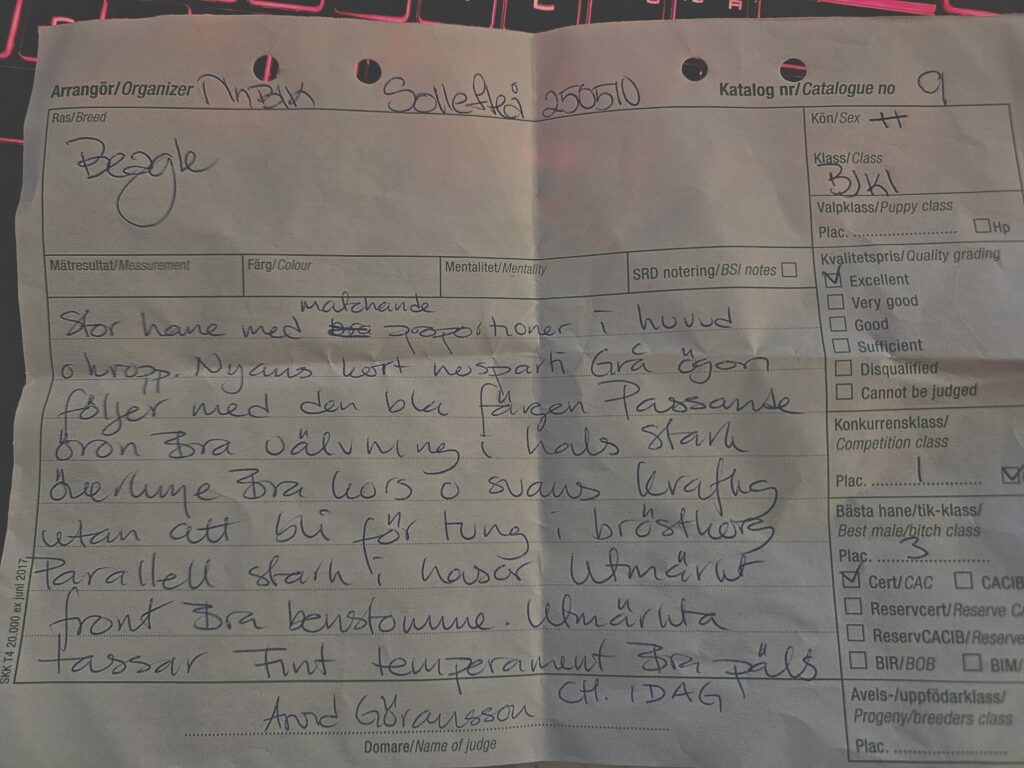 Arrangör/Organizer MhBLK Sollefteå 250510 Katalog nr/Catalogue no 9
Ras/Breed
Beagle
Kön/Sex H
Klass/Class
BJKL
Valpklass/Puppy class
Plac. Hp
Mätresultat/Measurement Färg/Colour Mentalitet/Mentality SRD notering/BSI notes
Kvalitetspris/Quality grading
Excellent
Very good
Good
Sufficient
Disqualified
Cannot be judged
matchande
Stor hane med popotioner i huvud
o kropp. Nyans kort nosparti Grå ögon
följer med den bla färgen Passande
öron Bra välvning i hals stark
överlinje Bra kors o svans Kraftig
utan att bli för tung i bröstkorg
Parallell stark i hasor Utmärkt
front Bra benstomme. Utmärkta
tassar Fint temperament Bra päls
CH. IDAG
Arvid Göransson
Domare/Name of judge
Konkurrensklass/
Competition class
Plac. 1
Bästa hane/tik-klass/
Best male/bitch class
Plac. 3
Cert/CAC CACIB
Reservcert/Reserve CA
ReservCACIB/Reserve
BIR/BOB BIM/
Avels-/uppfödarklass/
Progeny/breeders class
Plac.
SKK T4 20.000 ex juni 2017